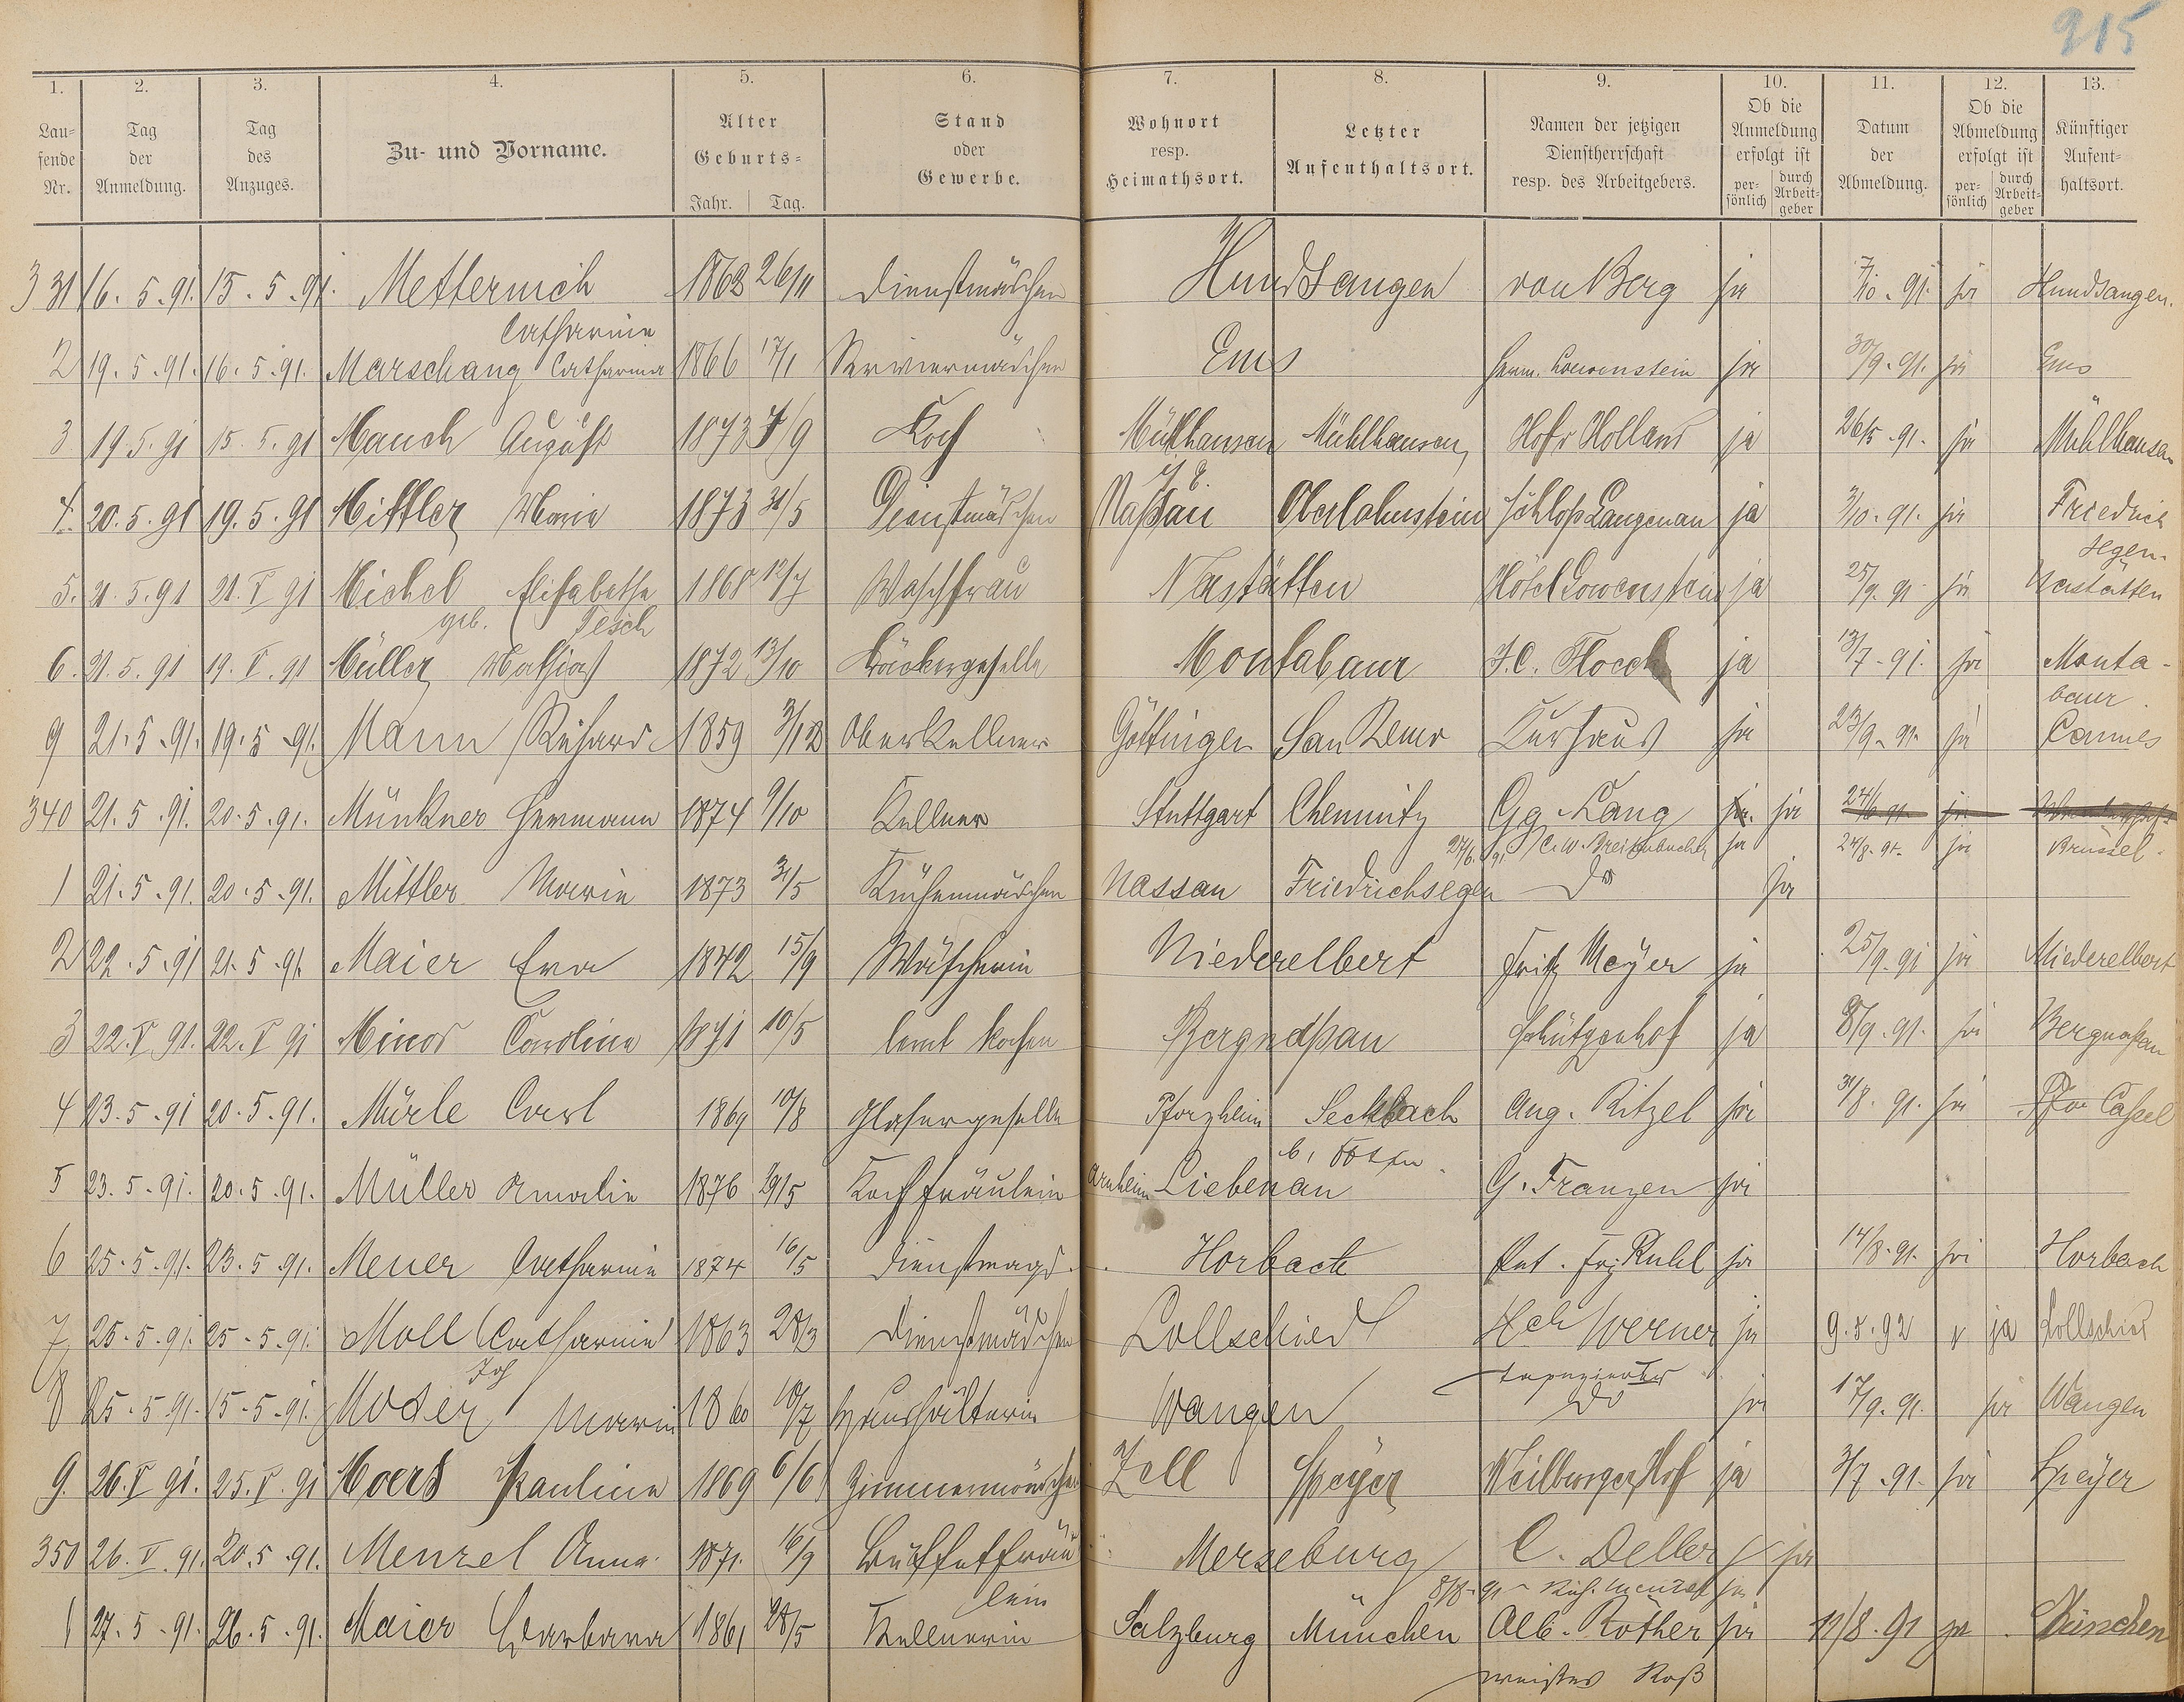 915
1. 2. 3. 4. 5. 6. 7. 8. 9. 10. 11. 12. 13.
Lau-fende Nr. Tag der Anmeldung. Tag des Anzuges. Zu- und Vorname. Alter Geburts- Jahr. Tag. Stand oder Gewerbe. Wohnort resp. Heimathsort. Letzter Aufenthaltsort. Namen der jetzigen Dienstherrschaft resp. des Arbeitgebers. Ob die Anmeldung erfolgt ist per-sönlich durch Arbeit-geber Datum der Abmeldung. Ob die Abmeldung erfolgt ist per-sönlich durch Arbeit-geber Künftiger Aufent-haltsort.
331 16. 5. 91. 15. 5. 91. Metternich 1868 26/11 Dienstmädchen Hundsangen von Berg ja 7/10. 91. ja Hundsangen.
Catharina
2 19. 5. 91. 16. 5. 91. Marschang Catharina 1866 17/1 Serviermädchen Ems Herm. Loewenstein ja 30/9. 91. ja Ems
3 19. 5. 91 15. 5. 91 Mauch August 1873 /9 Koch Mühlhausen Mühlhausen, Hof v Holland ja 26/5. 91. ja Mühlhausen
4. 20. 5. 91 19. 5. 91 Mittler Marie 1873 31/5 Dienstmädchen Naßau Oberlahnstein Schloß Langenau ja 3/10. 91. ja Friedrich
segen.
5. 21. 5. 91 21. V 91 Michel Elisabetha 1868 12/7 Waschfrau Nastätten Hôtel Lowenstein ja 25/9. 91 ja Nastätten
geb. Tesch
6. 21. 5. 91 19. V. 91 Müller Mathias 1872 13/10 Bäckergeselle Montabaur J. C. Flock ja 13/7. 91. ja Monta-
baur.
9 21. 5. 91. 19. 5. 91. Mann Richard 1859 3/12 Oberkellner Göttingen San Remo Kurhaus ja 23/9. 91. ja Cannes
340 21. 5. 91. 20. 5. 91. Münkner Hermann 1874 9/10 Kellner Stuttgart Chemnitz Gg. Lang ja. ja 24/6 91 ja
24/6. 91 C. W. Breitenbacher ja 24/8. 91. ja Brüssel.
1 21. 5. 91. 20. 5. 91. Mittler Marie 1873 31/5 Küchenmädchen Nassau Friedrichsegen Do ja
2 22. 5. 91 21. 5. 91. Maier Eva 1842 15/9 Wäscherin Niederelbert Fritz Meyer ja 25/9. 91 ja Niederelbert
3 22. V 91. 22. V 91 Minor Caroline 1871 10/5 lernt kochen Bergnaßau Schützenhof ja 8/9. 91. ja Bergnaßau
4 23. 5. 91 20. 5. 91. Mürle Carl 1869 10/8 Glasergeselle Pforzheim Seckbach Aug. Ritzel ja 31/8. 91. ja Cassel
5 23. 5. 91. 20. 5. 91. Müller Amalie 1876 29/5 Kochfräulein Arnheim Liebenau G. Franzen ja
6 25. 5. 91. 23. 5. 91. Meuer Catharine 1874 16/5 Dienstmagd. Horbach Ant. Frz Ruhl ja 14/8. 91. ja Horbach
7 25. 5. 91. 25. 5. 91. Moll Catharine 1863 28/3 Dienstmädchen Lollschied Hch Werner ja 9. 8. 92 ja Lollschied
Tapezierer
8 25. 5. 91. 15. 5. 91. Moser Marie 1860 10/7 Haushälterin Wangen Do ja 17/9. 91. ja Wangen
9. 26. V 91. 25. V. 91 Moers Pauline 1869 6/6 Zimmermädchen Zell Speyer Weilburger Hof ja 3/7. 91. ja Speyer
350 26. V. 91. 20. 5. 91. Menzel Anna 1871. 16/9 Büffetfräu- Merseburg C. Deller ja
lein 8/8. 91 ja
1 27. 5. 91. 26. 5. 91. Maier Barbara 1861 28/5 Kellnerin Salzburg München Alb. Rother ja 12/8. 91 ja München
weißes Roß